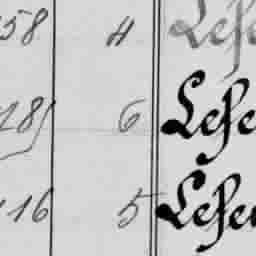 58 4 Lese
18 6 Lese
116 5 Lese